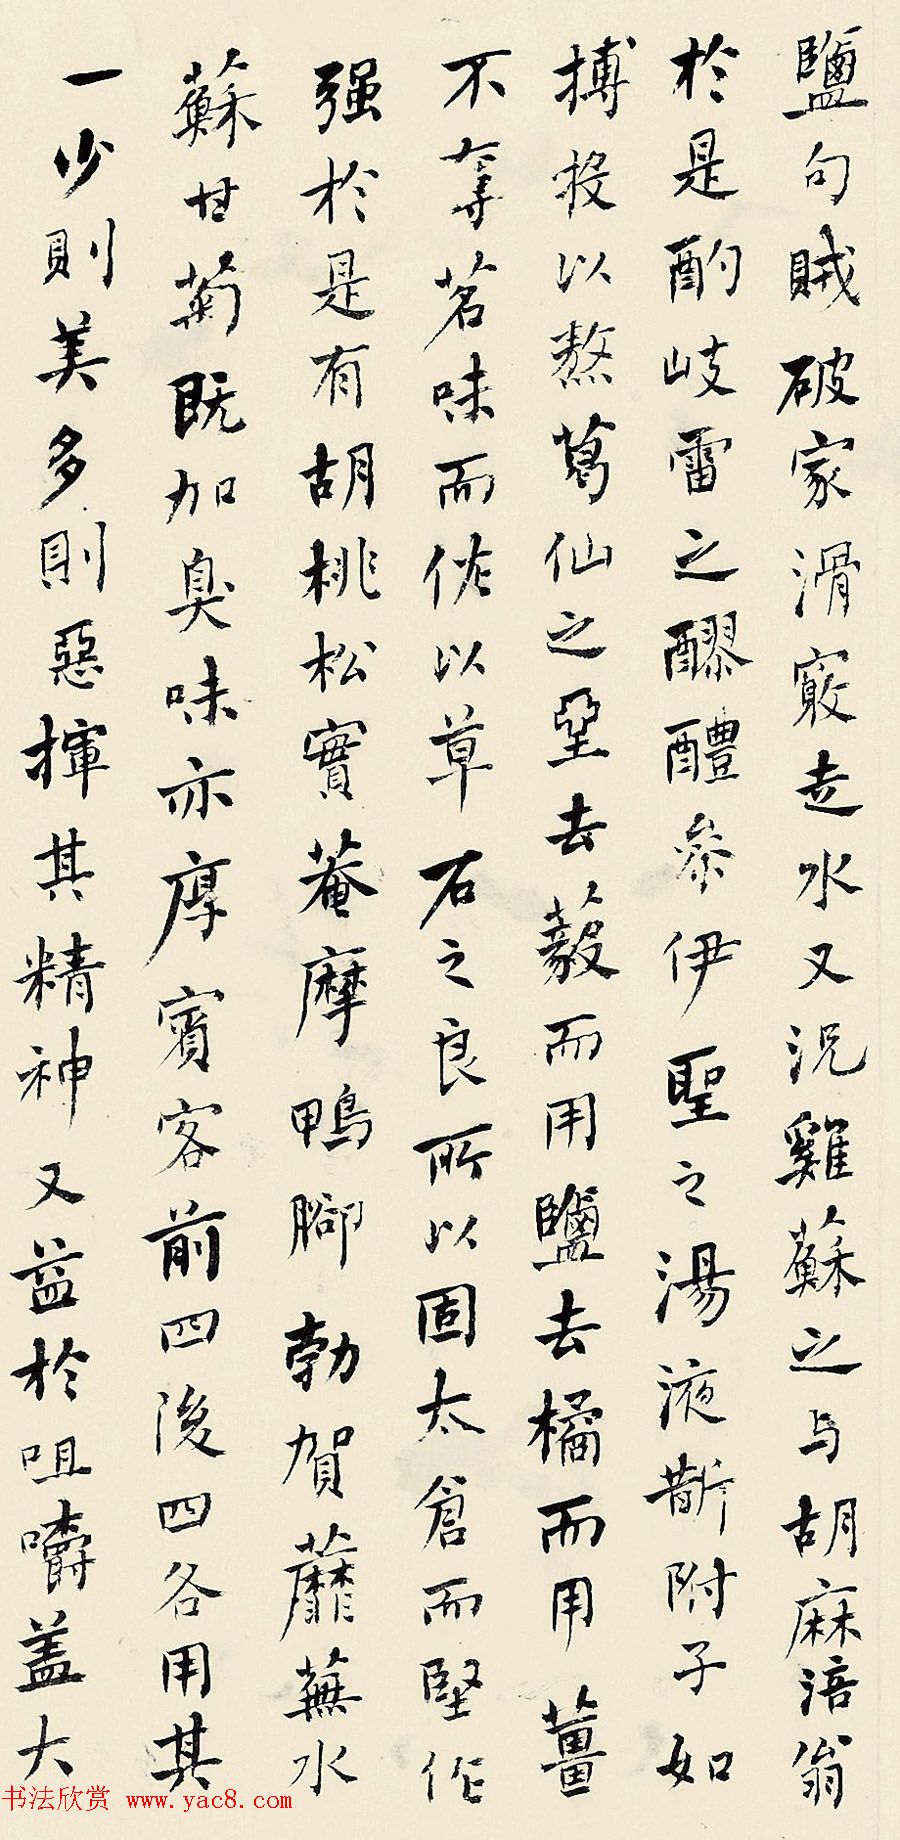 鹽句賊破家滑竅走水又況雞蘇之与胡麻涪翁
於是酌岐雷之醪醴參伊聖之湯液斮附子如
搏投以熬葛仙之堊去藙而用鹽去橘而用薑
不奪茗味而佐以草石之良所以固太倉而堅作
强於是有胡桃松實菴摩鴨腳勃賀蘼蕪水
蘇甘菊既加臭味亦厚賓客前四後四各用其
一少則美多則惡揮其精神又益於咀嚼盖大
书法欣赏 www.yac8.com